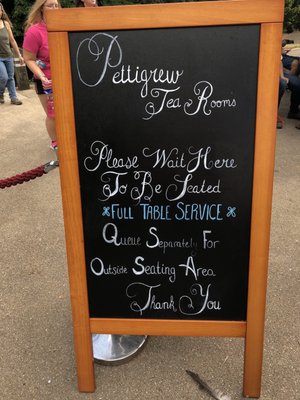 Pettigrew
Tea Rooms
Please Wait Here
To Be Seated
FULL TABLE SERVICE
Queue Separately For
Outside Seating Area
Thank You